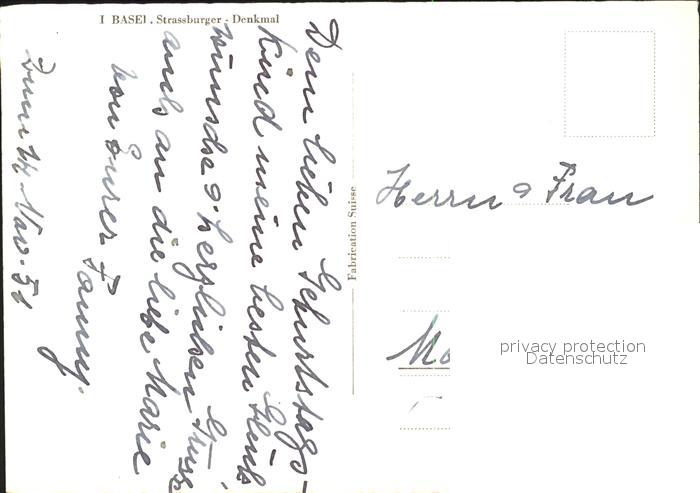 I BASEL . Strassburger - Denkmal
Dem lieben Geburtstags-
Kind meine besten Glück-
wünsche & herzlichen Grüsse
auch an die liebe Marie
von Eurer Fanny.
Zum 14 Nov. 51
Fabrication Suisse
Herrn & Frau
privacy protection
Datenschutz